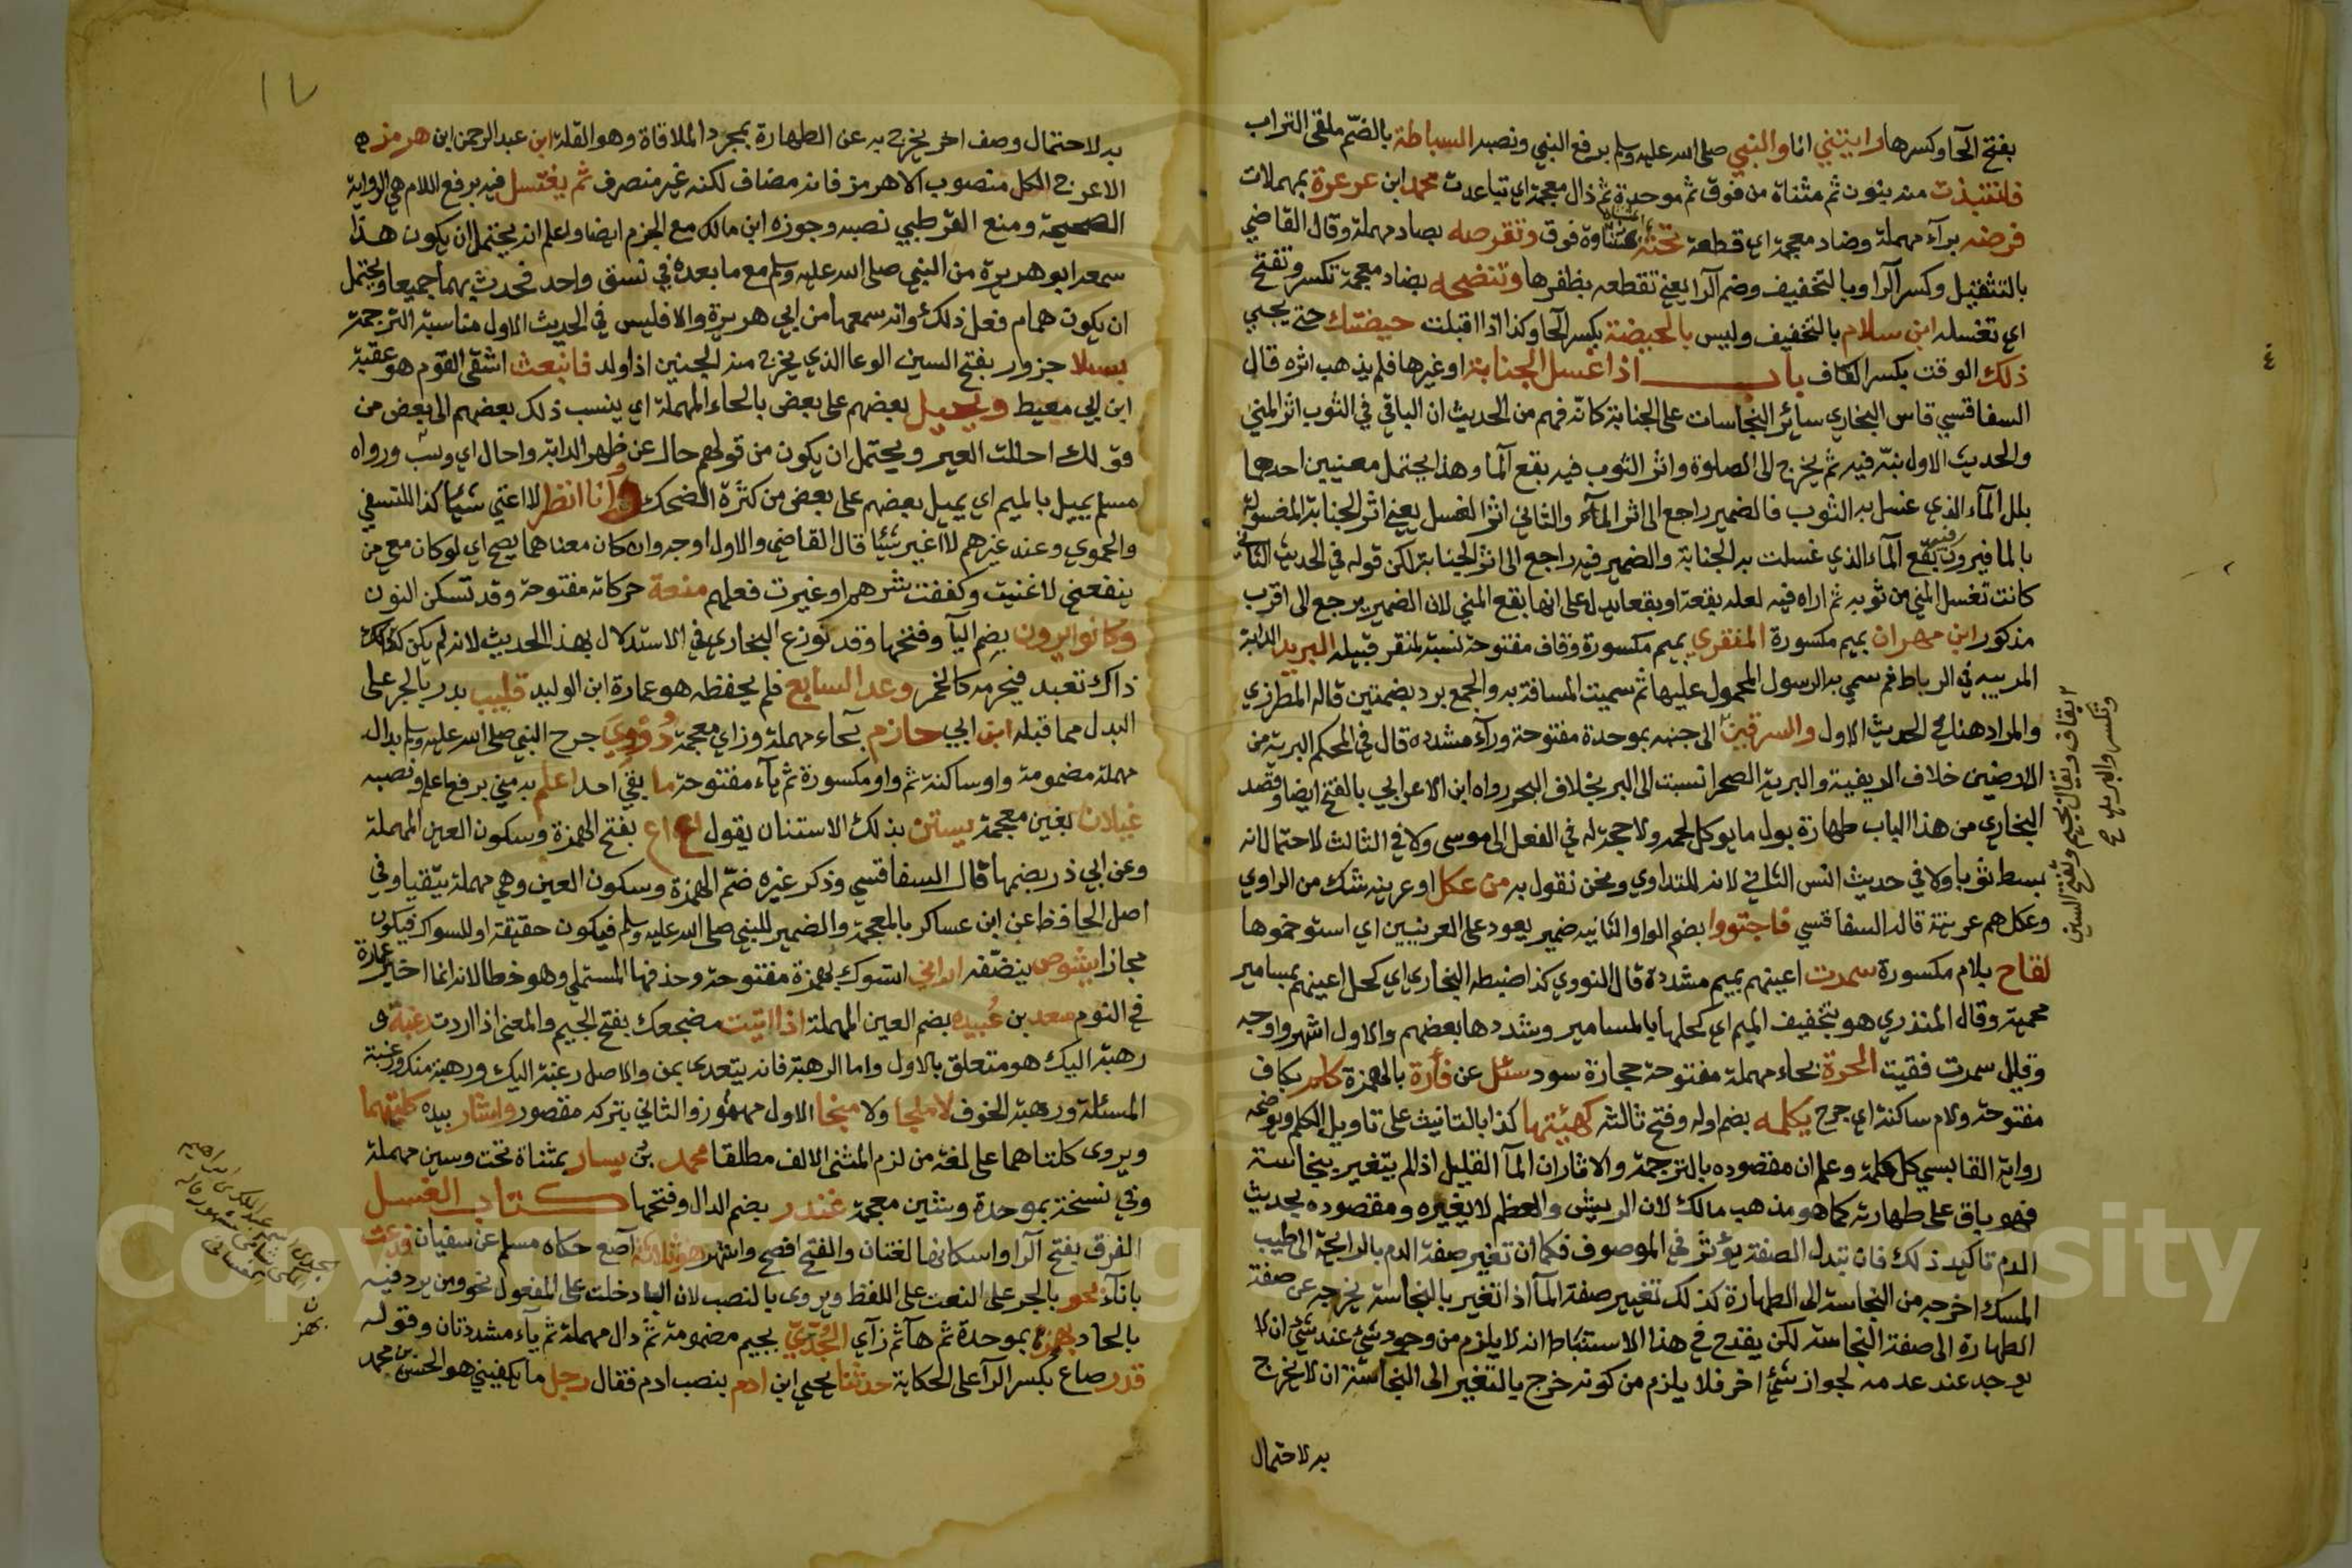 بفتح الحآ وكسرها رايتني انا والنبي صلى الله عليه وسلم برفع النبي ونصبه السباطة بالضّم ملقى التراب
فانتبذت منه بنون ثم مثناة من فوق ثم موحدة ثم ذال معجمة اي تباعدت محمد ابن عرعرة بمهملات
قرضه برآء مهملة وضاد معجمة اي قطعة تحته بمثناة فوق وتقرصه بصاد مهملة وقال القاضي
بالتثقيل وكسر الرا وبالتخفيف وضم الرا يعني تقطعه بظفرها وتنضحه بضاد معجمة تكسر وتفتح
اي تغسله ابن سلام بالتخفيف وليس بالحيضة بكسر الحا وكذا اذا اقبلت حيضتك حتى يجيي
ذلك الوقت بكسر الكاف باب اذا غسل الجنابة او غيرها فلم يذهب اثره قال
السفاقسي قاس البخاري سائر النجاسات على الجنابة كانه فهم من الحديث ان الباقي في الثوب اثر المني
والحديث الاول بيّنه فيه ثم يخرج الى الصلوة واثر الثوب فيه بقع الما وهذا يحتمل معنيين احدهما
بلل المآء الذي غسل به الثوب فالضمير راجع الى اثر المآء والثاني اثر الغسل يعني اثر الجنابة المغسولة
بالما فيرون فيه بقع المآء الذي غسلت به الجنابة والضمير فيه راجع الى اثر الجنابة لكن قوله في الحديث الثاني
كانت تغسل المني من ثوبه ثم اراه فيه لعله بقعة او بقعا يدل على انها بقع المني لان الضمير يرجع الى اقرب
مذكور ابن مهران بميم مكسورة المنقري بميم مكسورة وقاف مفتوحة نسبة لمنقر قبيله البريد الدابة
المرتبه في الرباط ثم سمي به الرسول المحمول عليها ثم سميت المسافة به والجمع برد بضمتين قاله المطرزي
والمراد هنا في الحديث الاول والسرقين الى جنبه بموحدة مفتوحة ورآء مشددة قال في المحكم البرية من
الارضين خلاف الريفية والبرية الصحرا نسبت الى البر بخلاف البحر رواه ابن الاعرابي بالفتح ايضا وقصد
البخاري من هذا الباب طهارة بول مايوكل لحمه ولا حجة له في الفعل الى موسى ولا في الثالث لاحتمال انه
بسط ثوبا ولا في حديث انس الثاني لانه للتداوي ونحن نقول به من عكل او عرينه شك من الراوي
وعكل هم عرينة قاله السفاقسي فاجتووا بضم الواو الثانيه ضمير يعود على العرنيين اي استوخموها
لقاح بلام مكسورة سمرت اعينهم بميم مشددة قال النووي كذا ضبطه البخاري اي كحل اعينهم بمسامير
محمية وقال المنذري هو بتخفيف الميم اي كحلها بالمسامير وشددها بعضهم والاول اشهر واوجه
وقيل سمرت فقيت الحرة بحاء مهملة مفتوحة حجارة سود سئل عن فأرة بالهمزة كلم بكاف
مفتوحة ولام ساكنة اي جرح يكلمه بضم اوله وفتح ثالثه كهيئتها كذا بالتانيث على تاويل الكلم ويوضحه
رواية القابسي كل كلمة وعلم ان مقصوده بالترجمة والاثار ان المآ القليل اذا لم يتغير بنجاسة
فهو باق على طهارته كما هو مذهب مالك لان الريش والعظم لا يغيره ومقصوده بحديث
الدم تاكيد ذلك فان تبدل الصفة يؤثر في الموصوف فكما ان تغير صفة الدم بالرايحة الى طيب
المسك اخرجه من النجاسة الى الطهارة كذلك تغيير صفة المآ اذا تغير بالنجاسة يخرجه عن صفة
الطهارة الى صفة النجاسة لكن يقدح في هذا الاستنباط انه لا يلزم من وجود شئ عند شئ ان لا
يوجد عند عدمه لجواز شئ اخر فلا يلزم من كونه خرج بالتغير الى النجاسة ان لا يخرج
به لاحتمال
بقاف ويقال بجيم وتفتح السين
وتكسر والبريه صح
١٧
به لاحتمال وصف اخر يخرج به عن الطهارة بمجرد الملاقاة وهو القلة ابن عبد الرحمن ابن هرمز
الاعرج الكل منصوب الا هرمز فانه مضاف لكنه غير منصرف ثم يغتسل فيه برفع اللام هي الرواية
الصحيحة ومنع القرطبي نصبه وجوزه ابن مالك مع الجزم ايضا واعلم انه يحتمل ان يكون هذا
سمعه ابو هريرة من النبي صلى الله عليه وسلم مع ما بعده في نسق واحد فحدث بهما جميعا ويحتمل
ان يكون همام فعل ذلك وانه سمعها من ابي هريرة والا فليس في الحديث الاول مناسبة الترجمة
بسلا جزور بفتح السين الوعا الذي يخرج منه الجنين اذا ولد فانبعث اشقى القوم هو عقبة
ابن ابي معيط ويحيل بعضهم على بعض بالحاء المهملة اي ينسب ذلك بعضهم الى بعض من
قولك احلت العير ويحتمل ان يكون من قولهم حال عن ظهر الدابة واحال اي وثب ورواه
مسلم يميل بالميم اي يميل بعضهم على بعض من كثرة الضحك وانا انظر لا اغني شيئا كذا للنسفي
والحموي وعند غيرهم لا اغير شيئا قال القاضي والاول اوجه وان كان معناهما يصح اي لو كان معي من
ينفعني لاغنيت وكففت شرهم او غيرت فعلهم منعة حركاته مفتوحة وقد تسكن النون
وكانوا يرون بضم اليآ وفتحها وقد نوزع البخاري في الاستدلال بهذا الحديث لانه لم يكن
ذاك تعبد فيحرمه كالخمر وعد السابع فلم يحفظه هو عمارة ابن الوليد قليب بدر بالجر على
البدل مما قبله ابن ابي حازم بحاء مهملة وزاي معجمة دُوْوِيَ جرح النبي صلى الله عليه وسلم بدال
مهملة مضمومة واو ساكنة ثم واو مكسورة ثم يآء مفتوحة ما بقي احد اعلم به مني برفع اعلم ونصبه
غيلان بغين معجمة يستن بذلك الاستنان يقول اع اع بفتح الهمزة وسكون العين المهملة
وعن ابي ذر بضمها قال السفاقسي وذكر غيره ضمّ الهمزة وسكون العين وهي مهملة يتقيا وفي
اصل الحافظ عن ابن عساكر بالمعجمة والضمير للنبي صلى الله عليه وسلم فيكون حقيقة او للسواك فيكون
مجازا يشوص ينضّفه اراني اتسوك بهمزة مفتوحة وحذفها المستملي وهو خطا لانه انما اخبر عمارة
في النوم سعد بن عُبيده بضم العين المهملة اذا اتيت مضجعك بفتح الجيم والمعنى اذا اردت رغبة و
رهبة اليك هو متعلق بالاول واما الرهبة فانه يتعدى بمن والاصل رغبة اليك ورهبة منك ورغبة
المسئلة ورهبة الخوف لا ملجا ولا منجا الاول مهموز والثاني بتركه مقصور واشار بيده كلتيهما
ويروى كلتاهما على لغة من لزم المثنى الالف مطلقا محمد بن يسار بمثناة تحت وسين مهملة
وفي نسخة بموحدة وشين معجمة غندر بضم الدال وفتحها كتاب الغسل
الفرق بفتح الرا واسكانها لغتان والفتح افصح واشهر هو ثلاثة آصع حكاه مسلم عن سفيان فدعت
باناء نحو بالجر على النعت على اللفظ ويروى بالنصب لان البا دخلت على المفعول نحو ومن يرد فيه
بالحاد بهز بموحدة ثم هآ ثم زآي الجُدّيّ بجيم مضمومة ثم دال مهملة ثم يآء مشددتان وقوله
قدر صاع بكسر الرآ على الحكاية حدثنا يحيى ابن ادم بنصب ادم فقال رجل ما يكفيني هو الحسن بن محمد
Copyright © King Saud University